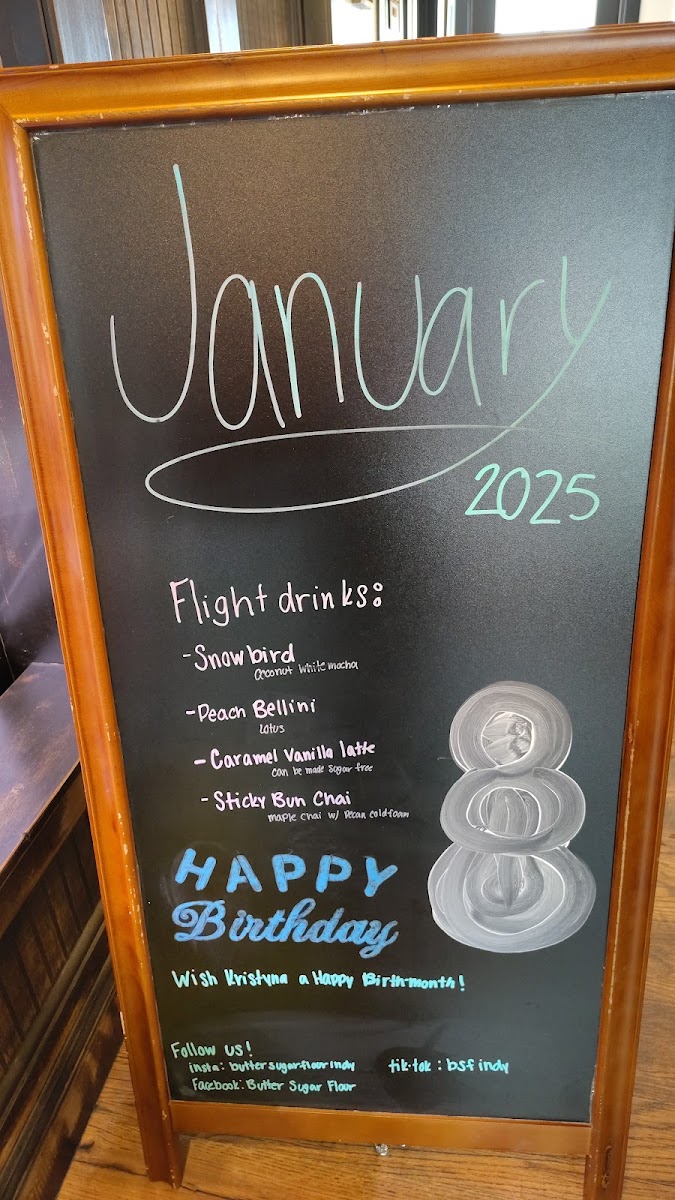 January
2025
Flight drinks:
- Snowbird
Coconut white mocha
- Peach Bellini
Lotus
- Caramel Vanilla latte
can be made sugar free
- Sticky Bun Chai
maple chai w/ Pecan coldfoam
HAPPY
Birthday
Wish Kristyna a Happy Birthmonth!
Follow us!
insta: buttersugarflourindy
tik-tok: bsfindy
Facebook: Butter Sugar Flour